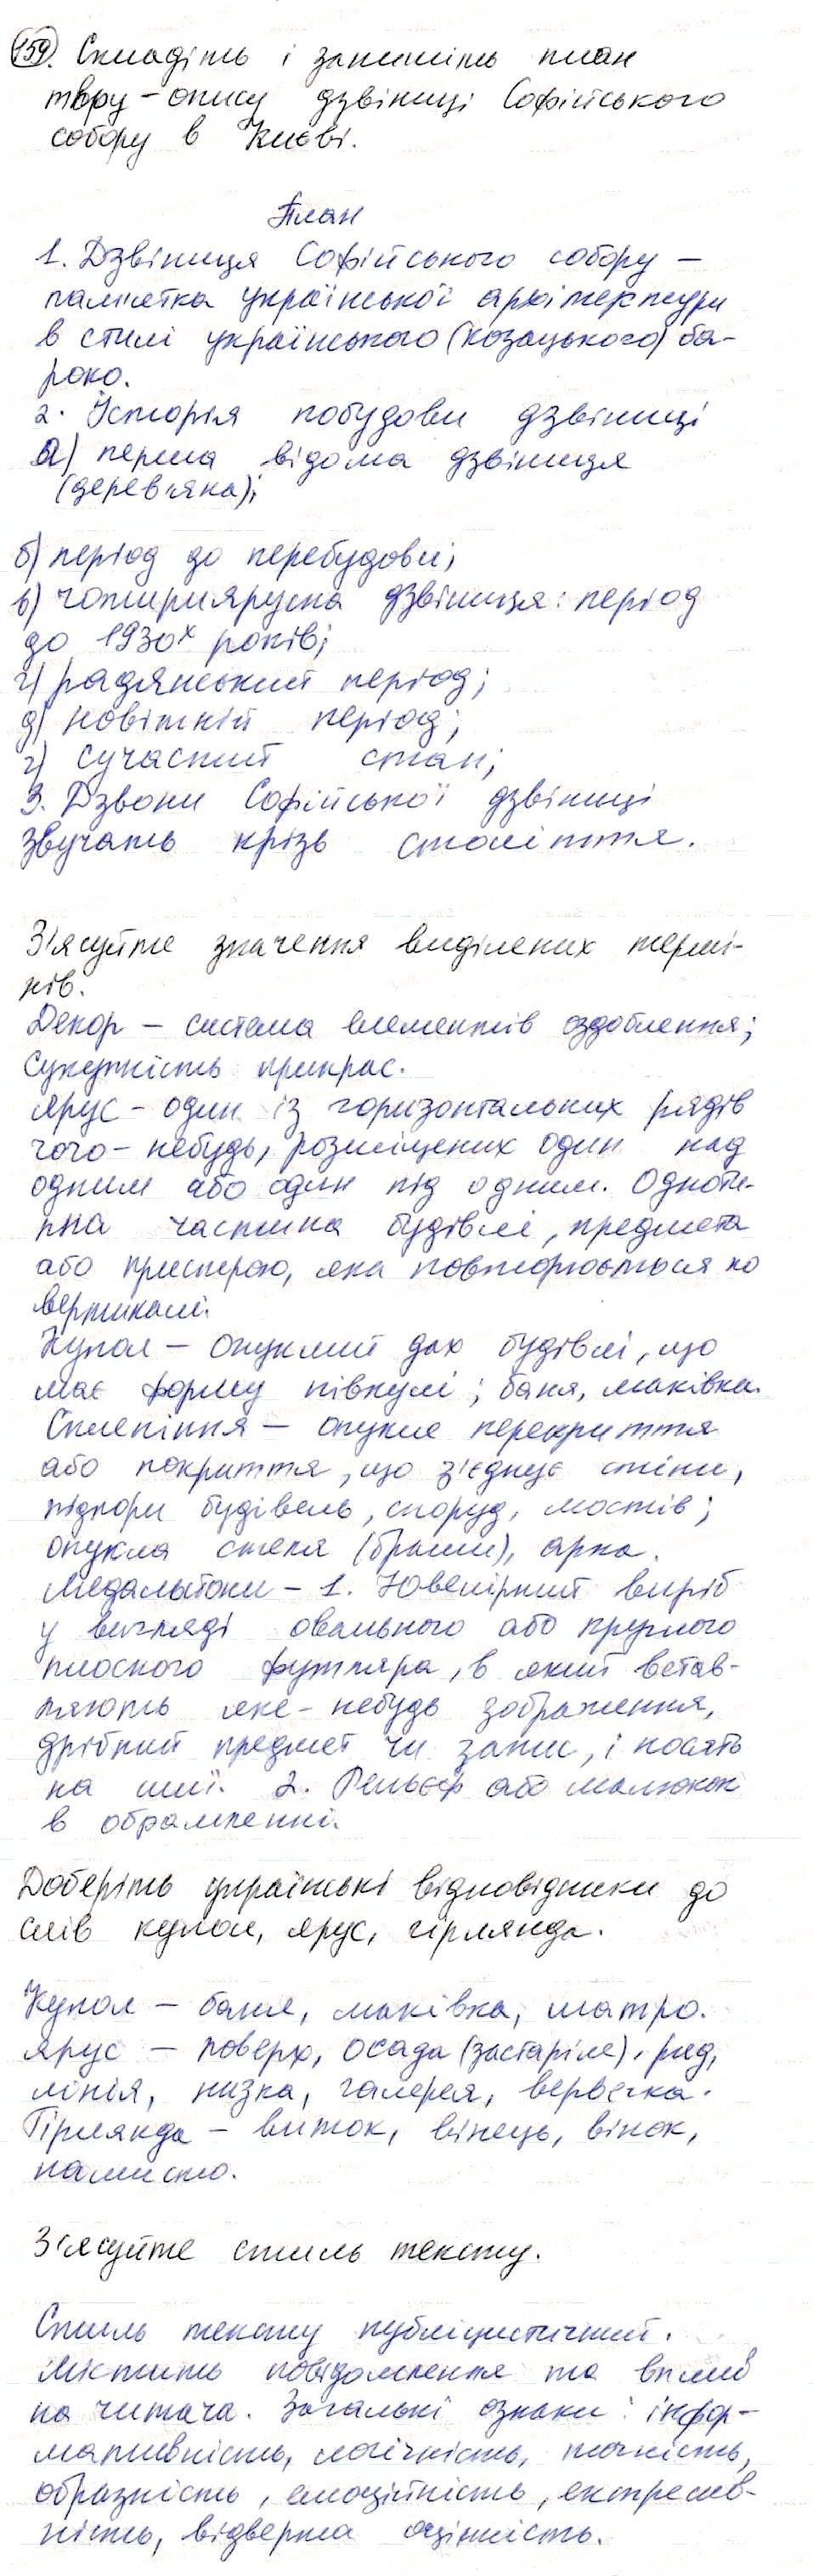 159. Складіть і запишіть план
твору-опису дзвіниці Софійського
собору в Києві.
План
1. Дзвіниця Софійського собору –
пам'ятка української архітектури
в стилі українського (козацького) ба-
роко.
2. Історія побудови дзвіниці
а) перша відома дзвіниця
(дерев'яна);
б) період до перебудови;
в) чотириярусна дзвіниця: період
до 1930х років;
г) радянський період;
д) новітній період;
г) сучасний стан;
3. Дзвони Софійської дзвіниці
звучать крізь століття.
З'ясуйте значення виділених термі-
нів.
Декор – система елементів оздоблення;
сукупність прикрас.
Ярус – один із горизонтальних рядів
чого-небудь, розміщених один над
одним або один під одним. Одноти-
пна частина будівлі, предмета
або пристрою, яка повторюється по
вертикалі.
Купол – опуклий дах будівлі, що
має форму півкулі; баня, маківка.
Склепіння – опукле перекриття
або покриття, що з'єднує стіни,
підпори будівель, споруд, мостів;
опукла стеля (брами), арка.
Медальйони – 1. Ювелірний виріб
у вигляді овального або круглого
плоского футляра, в який встав-
ляють яке-небудь зображення,
дрібний предмет чи запис, і носять
на шиї. 2. Рельєф або малюнок
в обрамленні.
Доберіть українські відповідники до
слів купол, ярус, гірлянда.
Купол – баня, маківка, шатро.
Ярус – поверх, осада (застаріле), ряд,
лінія, низка, галерея, вервечка.
Гірлянда – виток, вінець, вінок,
намисто.
З'ясуйте стиль тексту.
Стиль тексту публіцистичний.
Містить повідомлення та вплив
на читача. Загальні ознаки: інфор-
мативність, логічність, точність,
образність, емоційність, експресив-
ність, відверта оцінність.